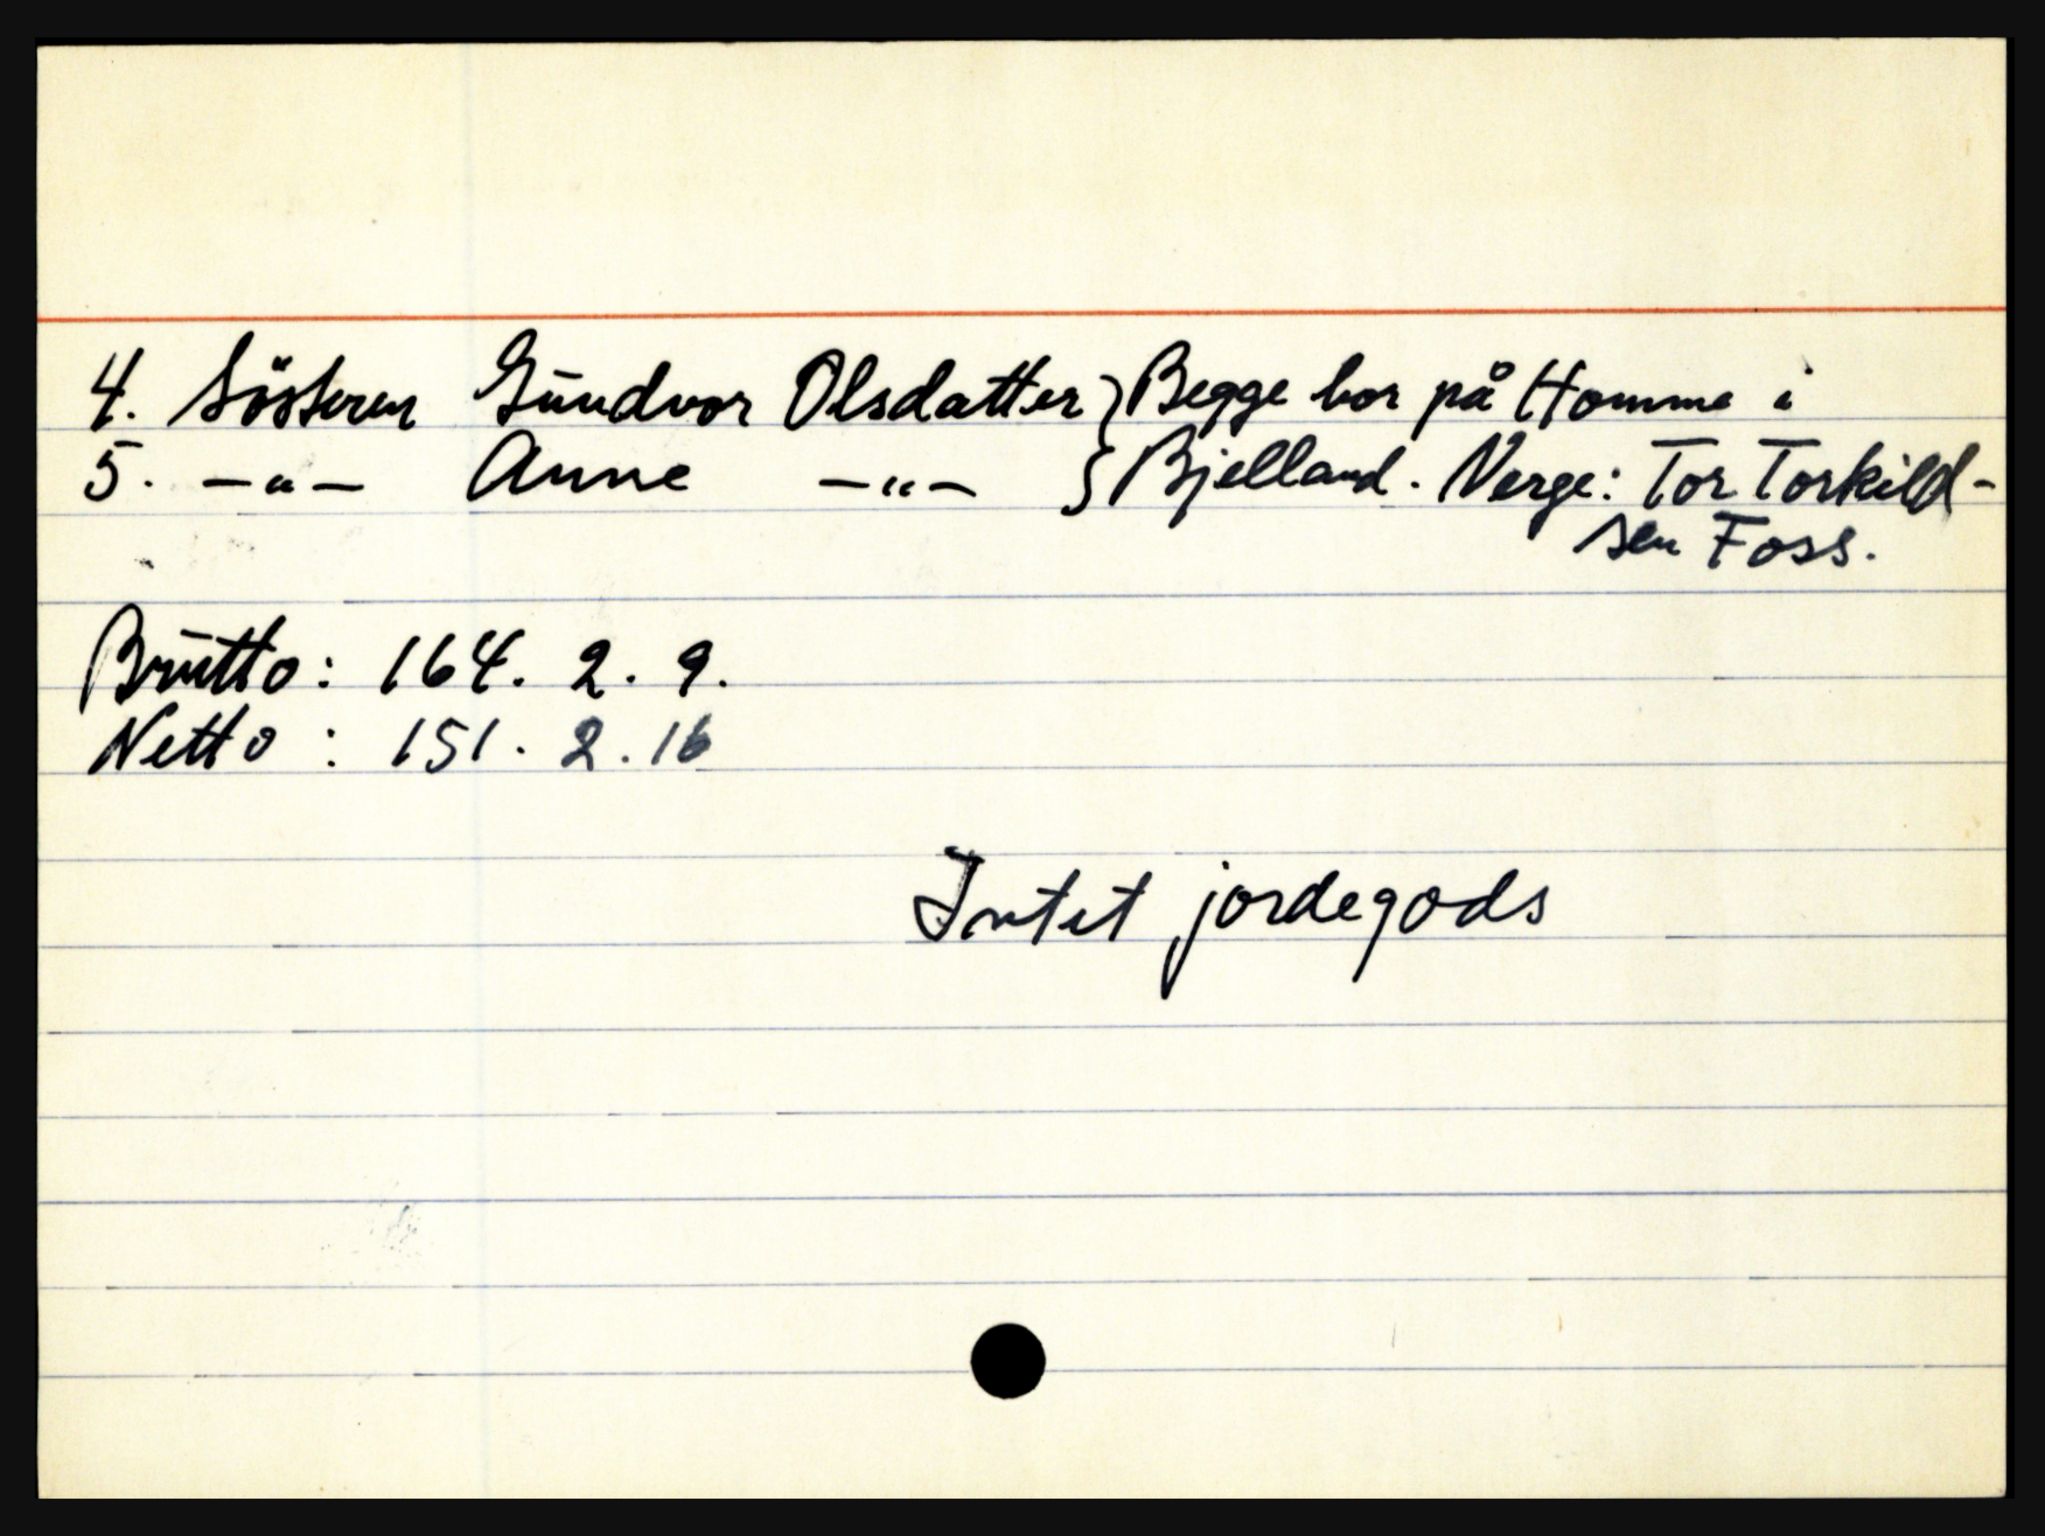 4. Sösteren Gundvor Olsdatter } Begge bor på Homme i
5. -"- Anne -"- } Bjelland. Verge: Tor Torkild-
sen Foss.
Brutto: 164. 2. 9.
Netto: 151. 2. 16
Intet jordegods